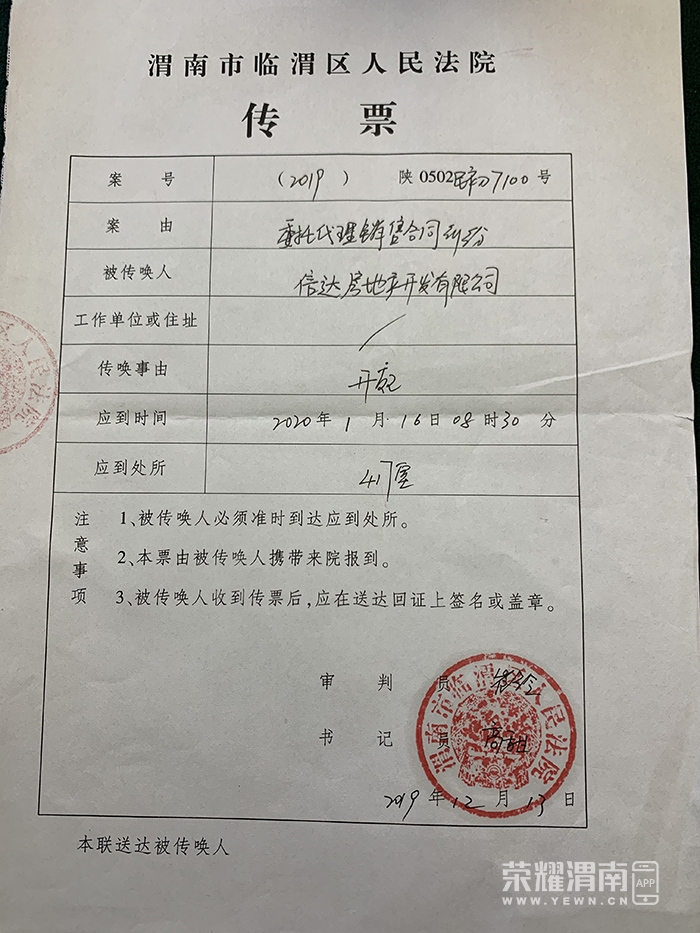 渭南市临渭区人民法院
传 票
案 号 （2019 ） 陕 0502民初7100 号
案 由 委托代理销售合同纠纷
被传唤人 信达房地产开发有限公司
工作单位或住址 /
传唤事由 开庭
应到时间 2020 年 1 月 16 日 08 时 30 分
应到处所 417室
注意事项
1、被传唤人必须准时到达应到处所。
2、本票由被传唤人携带来院报到。
3、被传唤人收到传票后，应在送达回证上签名或盖章。
审 判 员
书 记 员
渭南市临渭区人民法院
2019 年 12 月 13 日
本联送达被传唤人
人民法院
荣耀渭南 APP
WWW.YEWN.CN